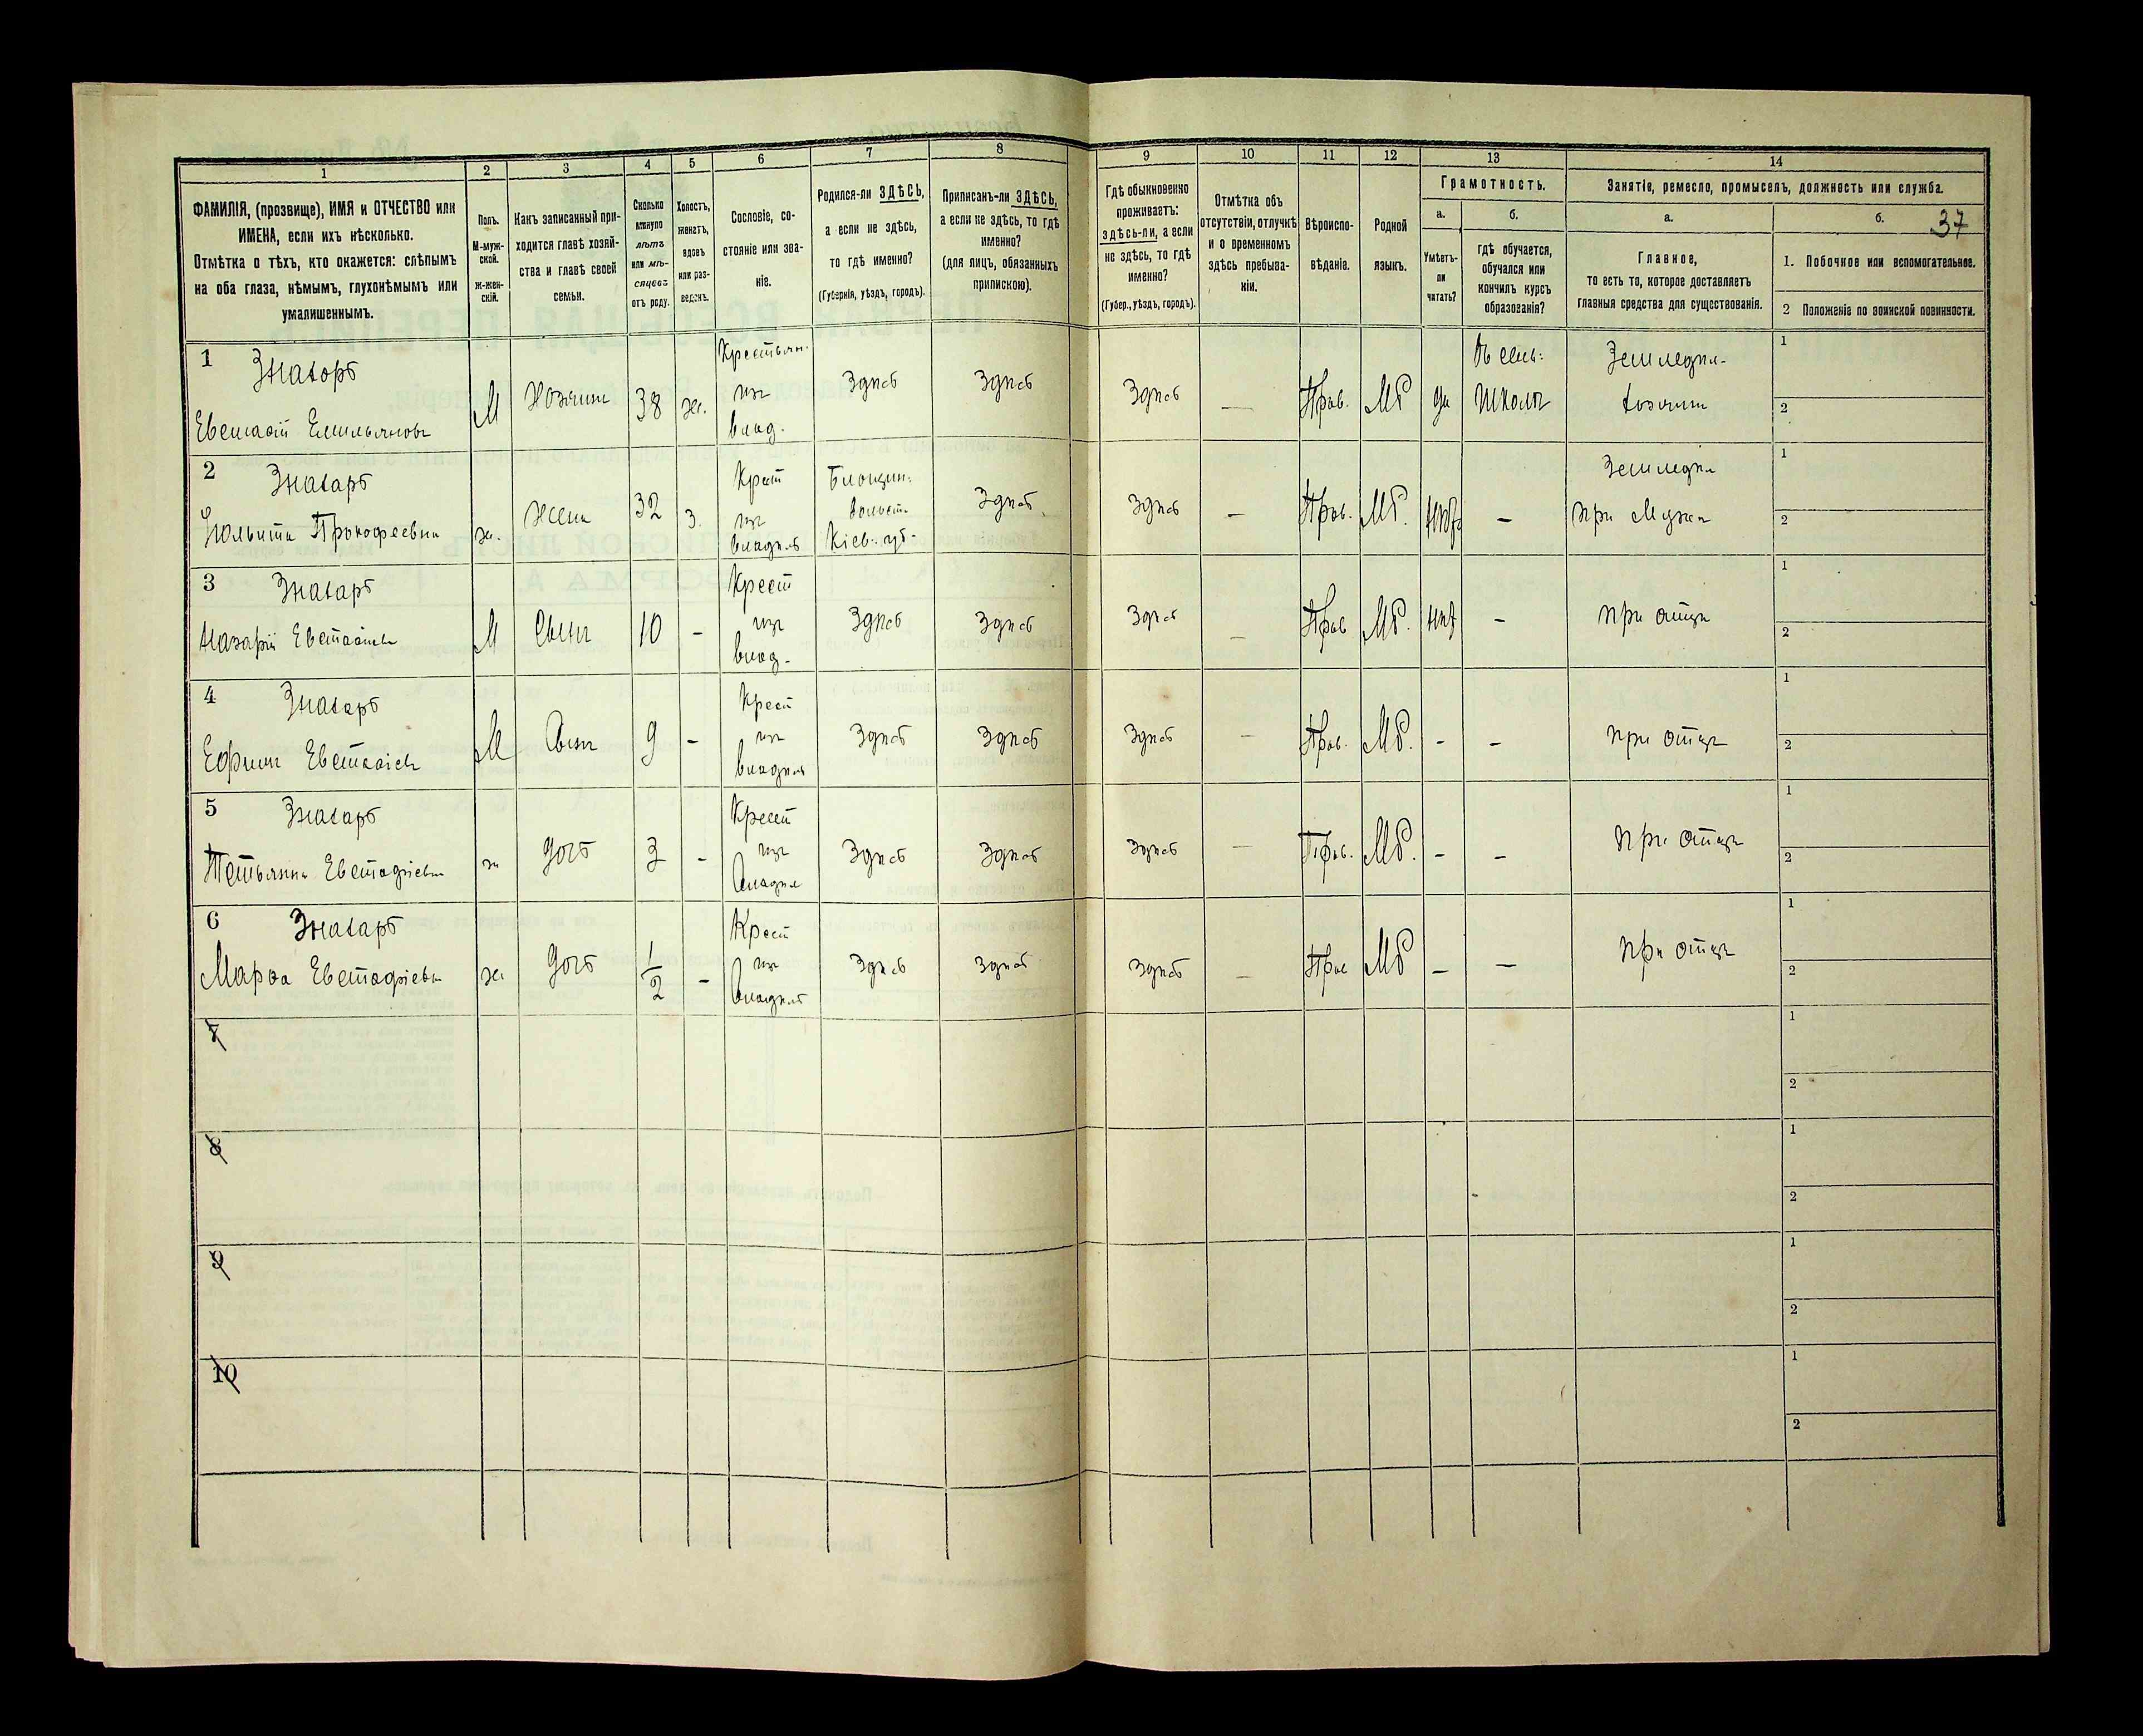 1
2
3
4
5
6
7
8
ФАМИЛІЯ, (прозвище), ИМЯ и ОТЧЕСТВО или
ИМЕНА, если ихъ нѣсколько.
Отмѣтка о тѣхъ, кто окажется: слѣпымъ
на оба глаза, нѣмымъ, глухонѣмымъ или
умалишеннымъ.
Полъ.
М-муж-
ской.
ж-жен-
скій.
Какъ записанный при-
ходится главѣ хозяй-
ства и главѣ своей
семьи.
Сколько
минуло
лѣтъ
или мѣ-
сяцевъ
отъ роду.
Холостъ,
женатъ,
вдовъ
или раз-
веденъ.
Сословіе, со-
стояніе или зва-
ніе.
Родился-ли ЗДѢСЬ,
а если не здѣсь,
то гдѣ именно?
(Губернія, уѣздъ, городъ).
Приписанъ-ли ЗДѢСЬ,
а если не здѣсь, то гдѣ
именно?
(для лицъ, обязанныхъ
припискою).
9
10
11
12
13
14
Гдѣ обыкновенно
проживаетъ:
здѣсь-ли, а если
не здѣсь, то гдѣ
именно?
(Губер., уѣздъ, городъ).
Отмѣтка объ
отсутствіи, отлучкѣ
и о временномъ
здѣсь пребыва-
ніи.
Вѣроиспо-
вѣданіе.
Родной
языкъ.
Грамотность.
а.
б.
Умѣетъ-
ли
читать?
гдѣ обучается,
обучался или
кончилъ курсъ
образованія?
Занятіе, ремесло, промыселъ, должность или служба.
а.
б.
37
Главное,
то есть то, которое доставляетъ
главныя средства для существованія.
1. Побочное или вспомогательное.
2 Положеніе по воинской повинности.
1
Знахарь
М
Хозяинъ
38
ж.
Крестьян.
изъ
влад.
Здѣсь
Здѣсь
Здѣсь
—
Прав.
МР
да
Школѣ
1
2
2
Знахарь
Прокофеевна
ж.
жена
32
з.
Крест
изъ
владѣль
Кіев. губ.
Здѣсь
Здѣсь
—
Прав.
МР.
нѣтъ
—
при мужѣ
1
2
3
Знахарь
Назарій
М
Сынъ
10
-
Крест
изъ
влад.
Здѣсь
Здѣсь
Здѣсь
—
Прав
МР.
нѣт
—
при отцѣ
1
2
4
Знахарь
Ефимъ
М
Сынъ
9
-
Крест
изъ
владѣль
Здѣсь
Здѣсь
Здѣсь
—
Прав.
МР.
-
-
при отцѣ
1
2
5
Знахарь
Тетьяна Евстафіевна
ж
дочь
3
-
Крест
изъ
владѣл
Здѣсь
Здѣсь
Здѣсь
—
Прав.
МР.
-
-
при отцѣ
1
2
6
Знахарь
Марѳа Евстафіевна
ж
дочь
1/2
-
Крест
изъ
владѣль
Здѣсь
Здѣсь
Здѣсь
—
Прав
МР
-
—
при отцѣ
1
2
7
1
2
8
1
2
9
1
2
10
1
2